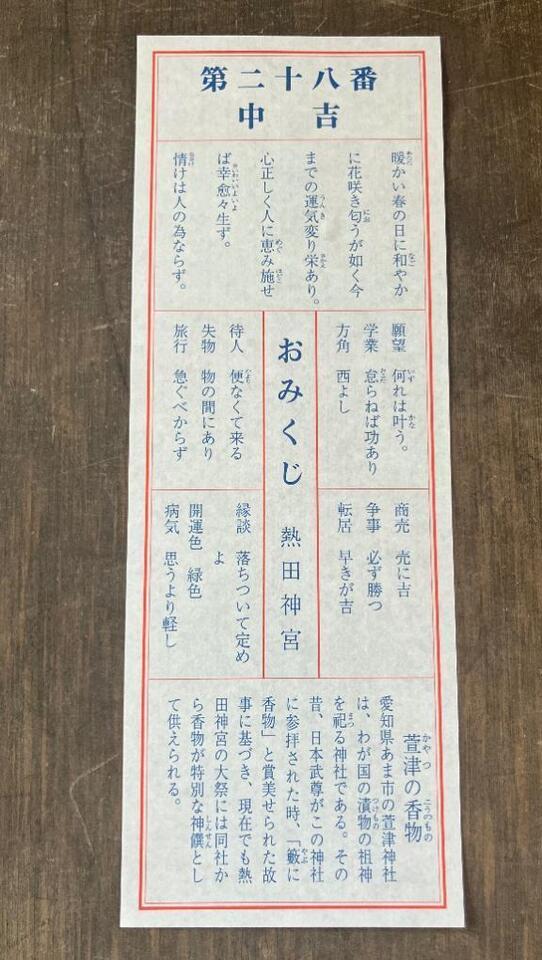 第二十八番
中吉
暖かい春の日に和やか
に花咲き匂うが如く今
までの運気変り栄あり。
心正しく人に恵み施せ
ば幸愈々生ず。
情けは人の為ならず。
願望　何れは叶う。
学業　怠らねば功あり
方角　西よし
おみくじ　熱田神宮
待人　便なくて来る
失物　物の間にあり
旅行　急ぐべからず
商売　売に吉
争事　必ず勝つ
転居　早きが吉
縁談　落ちついて定め
よ
開運色　緑色
病気　思うより軽し
萱津の香物
愛知県あま市の萱津神社
は、わが国の漬物の祖神
を祀る神社である。その
昔、日本武尊がこの神社
に参拝された時、「藪に
香物」と賞美せられた故
事に基づき、現在でも熱
田神宮の大祭には同社か
ら香物が特別な神饌とし
て供えられる。